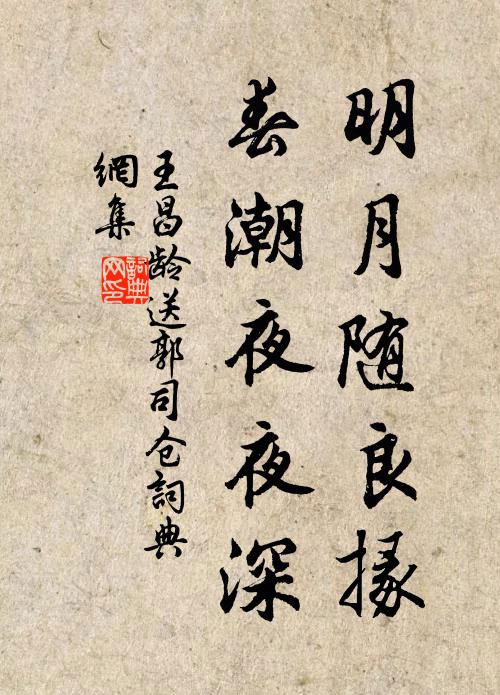 明月随良掾
春潮夜夜深
王昌龄送郭司仓詞典
網集
詞典
网印